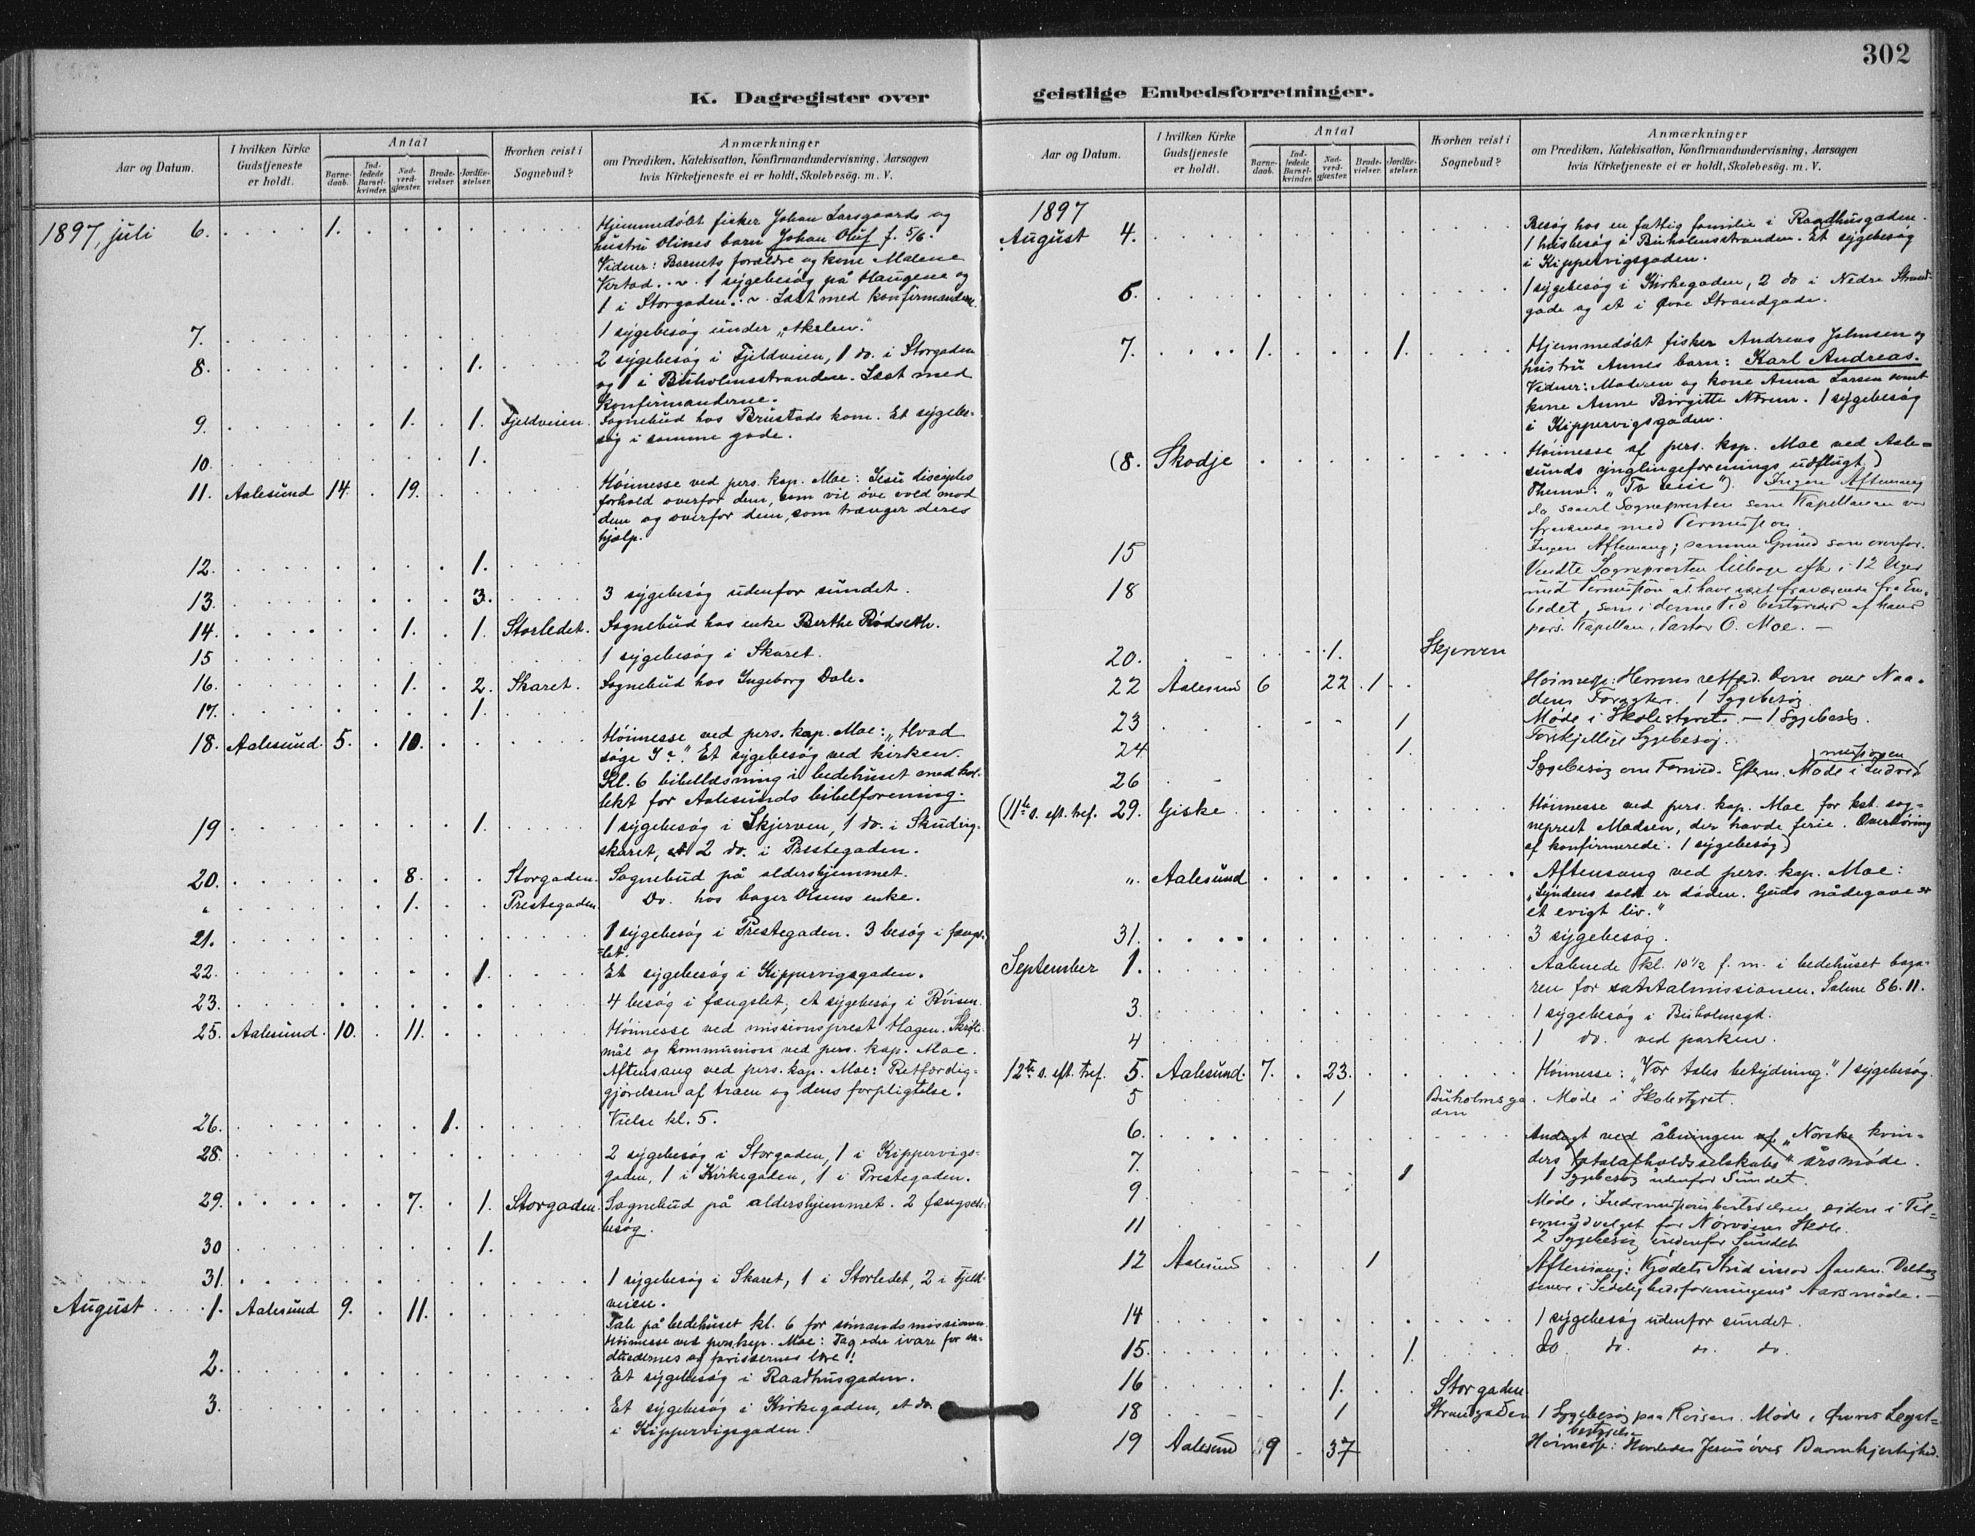 302
K. Dagregister over
Aar og Datum.
I hvilken Kirke Gudstjeneste er holdt.
Antal
Barnedaab.
Indledede Barselkvinder.
Nadverdgjæster.
Brudevielser.
Jordfæstelser.
Hvorhen reist i Sognebud?
Anmærkninger
om Prædiken, Katekisation, Konfirmandundervisning, Aarsagen
hvis Kirketjeneste ei er holdt, Skolebesög. m. V.
1897, juli 6. 1. Hjemmedøbt fisker Johan Larsgaards og
hustru Olines barn Johan Oluf f. 5/6.
Vidner: Barnets forældre og kone Malene
1 sygebesøg på Haugene og
1 i Storgaden. Læst med konfirmanderne.
7. 1 sygebesøg under "Akslen."
8. 1. 2 sygebesøg i Fjeldveien, 1 do. i Storgaden
og 1 i Buholmsstranden. Læst med
konfirmanderne.
9. 1. 1. Fjeldveien. Sognebud hos Brustads kone. Et sygebe-
søg i samme gade.
10. 1.
11. Aalesund 14. 19. Høimesse ved pers. kap. Moe: Jesu disciples
forhold overfor dem, som vil øve vold mod
dem og overfor dem, som trænger deres
hjælp.
12. 1.
13. 3. 3 sygebesøg udenfor sundet.
14. 1. 1. Storledet. Sognebud hos enke Berthe Rødseth.
15 1 sygebesøg i Skaret.
16. 1. 2. Skaret. Sognebud hos Ingeborg Dale.
17. 1.
18. Aalesund. 5. 10. Høimesse ved pers. kap. Moe: "Hvad
søge I?" Et sygebesøg ved kirken.
Kl. 6 bibellæsning i bedehuset med kol-
lekt for Aalesunds bibelforening.
19 1. 1 sygebesøg i Skjerven, 1 do. i Skudvig-
skaret, 2 do. i Prestegaden.
20. 8. Storgaden. Sognebud på aldershjemmet.
" 1. Prestegaden. Do. hos bager Olsens enke.
21. 1 sygebesøg i Prestegaden. 3 besøg i fængs-
let.
22. 1. Et sygebesøg i Kippervigsgaden.
23. 4 besøg i fængslet, et sygebesøg i Røisen.
25. Aalesund. 10. 11. Høimesse ved missionsprest Hagen. Skrifte-
mål og kommunion ved pers. kap. Moe.
Aftensang ved pers. kap. Moe: Retfærdig-
gjørelsen af troen og dens forpligtelse.
26. 1. Vielse kl. 5.
28. 2 sygebesøg i Storgaden, 1 i Kippervigs-
gaden, 1 i Kirkegaden, 1 i Prestegaden.
29. 7. 1. Storgaden. Sognebud på aldershjemmet. 2 fængsels-
besøg.
30 1.
31. 1 sygebesøg i Skaret, 1 i Storledet, 2 i Fjeld-
veien.
August 1. Aalesund 9. 11. Tale på bedehuset kl. 6 for sømandsmissionen.
Høimesse ved pers. kap. Moe: Tag eder ivare for sa-
dukæernes og farisæernes lære!
2. Et sygebesøg i Raadhusgaden.
3. Et sygebesøg i Kirkegaden, et do.
i Kippervigsgaden.
geistlige Embedsforretninger.
Aar og Datum.
I hvilken Kirke Gudstjeneste er holdt.
Antal
Barnedaab.
Indledede Barselkvinder.
Nadverdgjæster.
Brudevielser.
Jordfæstelser.
Hvorhen reist i Sognebud?
Anmærkninger
om Prædiken, Katekisation, Konfirmandundervisning, Aarsagen
hvis Kirketjeneste ei er holdt, Skolebesög. m. V.
1897
August 4. Besøg hos en fattig familie i Raadhusgaden.
1 husbesøg i Buholmsstranden. Et sygebesøg
i Kippervigsgaden.
5. 1 sygebesøg i Kirkegaden, 2 do i Nedre Strand-
gade og et i Øvre Strandgade.
7. 1. 1. Hjemmedøbt fisker Andreas Johnsen og
hustru Annes barn: Karl Andreas.
Vidner: Moderen og kone Anna Larsen samt
kone Anne Birgitte 1 sygebesøg
i Kippervigsgaden.
(8. Skodje Høimesse af pers. kap. Moe ved Aale-
sunds ynglingeforenings udflugt)
Thema: "To veie"). Ingen Aftensang
da saavel Sognepresten som Kapellanen var
fraværende med Permission.
15 Ingen Aftensang; samme Grund som ovenfor.
18 Vendte Sognepresten tilbage efter i 12 Uger
med Permission at have været fraværende fra Em-
bedet, som i denne Tid bestyredes af hans
pers. Kapellan, Pastor O. Moe.
20. 1. Skjerven
22 Aalesund 6 22 1 Høimesse: Herrens retfærd. Dom over Naa-
dens 1 Sygebesøg
23 1 Møde i Skolestyret. - 1 Sygebesøg.
24 1. Forskjellige Sygebesøg.
26 Sygebesøg om Formid. Efterm. Møde i Indre-
missionen
(11te s. eft. tref. 29. Giske Høimesse ved pers. kap. Moe for kst. sog-
neprest Madsen, der havde ferie. Overhøring
af konfirmerede. 1 sygebesøg)
" Aalesund Aftensang ved pers. kap. Moe:
"Syndens sold er døden. Guds nådegave er
et evigt liv."
31. 3 sygebesøg.
September 1. Aabnede kl. 10 1/2 f. m. i bedehuset baza-
ren for santalmissionen. Salme 86. 11.
3. 1 sygebesøg i Buholmsgd.
4 1 do. ved parken.
12te s. eft. tref. 5. Aalesund. 7. 23. Høimesse: "Vor tales betydning." 1 sygebesøg.
5 1 Buholmsga
den Møde i Skolestyret.
6. Andagt ved åbningen af "Norske kvin-
ders totalafholdsselskabs" årsmøde.
7. 1 1 Sygebesøg udenfor Sundet.
9 Møde i Indremissionsbestyrelsen, siden i Til-
synsudvalget for Nørvøens Skole.
11 2 Sygebesøg indenfor Sundet
12 Aalesund 1 Aftensang: Kjødets Strid imod Aanden. Deltog
senere i Sedelighedsforeningens Aarsmøde.
14 1 sygebesøg udenfor sundet.
15. 1. do do. do. do.
16 1. Storgaden
18 1 Strandgaden 1 Sygebesøg paa Røisen. Møde i Legat-
bestyrelse
19 Aalesund 9 37 Høimesse: Hvorledes Jesus øver Barmhjertighed.